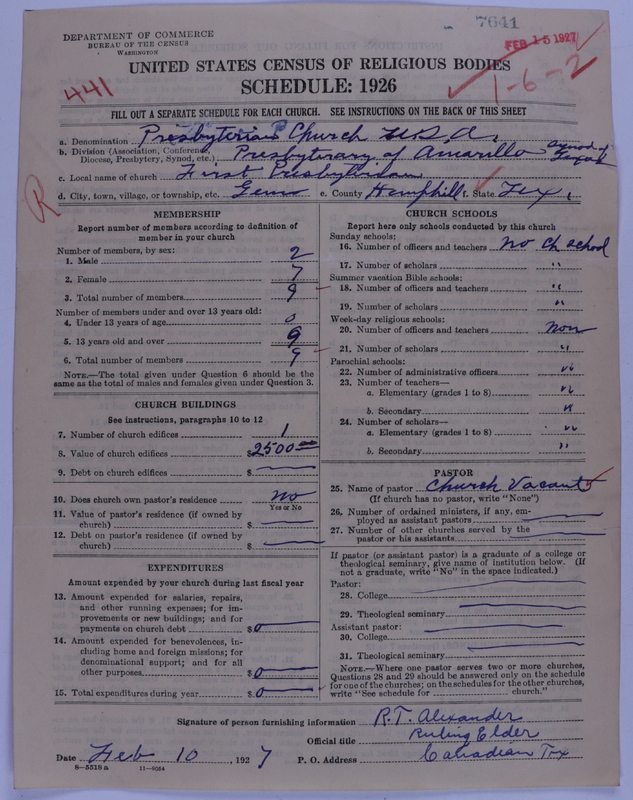 7641
DEPARTMENT OF COMMERCE
BUREAU OF THE CENSUS
WASHINGTON
FEB 15 1927
UNITED STATES CENSUS OF RELIGIOUS BODIES
SCHEDULE: 1926
441
1-6-2
FILL OUT A SEPARATE SCHEDULE FOR EACH CHURCH. SEE INSTRUCTIONS ON THE BACK OF THIS SHEET
a. Denomination Presbyterian Church U.S.A.
b. Division (Association, Conference, Diocese, Presbytery, Synod, etc.) Presbyterary of Amarillo Synod of Texas
c. Local name of church First Presbyterian
d. City, town, village, or township, etc. e. County Hemphill f. State Tex
R
MEMBERSHIP
Report number of members according to definition of
member in your church
Number of members, by sex:
1. Male 2
2. Female 7
3. Total number of members 9
Number of members under and over 13 years old:
4. Under 13 years of age 0
5. 13 years old and over 9
6. Total number of members 9
NOTE.—The total given under Question 6 should be the
same as the total of males and females given under Question 3.
CHURCH BUILDINGS
See instructions, paragraphs 10 to 12
7. Number of church edifices 1
8. Value of church edifices $2500 00
9. Debt on church edifices $
10. Does church own pastor's residence no
Yes or No
11. Value of pastor's residence (if owned by
church) $
12. Debt on pastor's residence (if owned by
church) $
EXPENDITURES
Amount expended by your church during last fiscal year
13. Amount expended for salaries, repairs,
and other running expenses; for im-
provements or new buildings; and for
payments on church debt $0
14. Amount expended for benevolences, in-
cluding home and foreign missions; for
denominational support; and for all
other purposes $0
15. Total expenditures during year $0
CHURCH SCHOOLS
Report here only schools conducted by this church
Sunday schools:
16. Number of officers and teachers no ch school
17. Number of scholars "
Summer vacation Bible schools:
18. Number of officers and teachers "
19. Number of scholars "
Week-day religious schools:
20. Number of officers and teachers non
21. Number of scholars "
Parochial schools:
22. Number of administrative officers "
23. Number of teachers—
a. Elementary (grades 1 to 8) "
b. Secondary "
24. Number of scholars—
a. Elementary (grades 1 to 8) "
b. Secondary "
PASTOR
25. Name of pastor Church Vacant
(If church has no pastor, write "None")
26. Number of ordained ministers, if any, em-
ployed as assistant pastors
27. Number of other churches served by the
pastor or his assistants
If pastor (or assistant pastor) is a graduate of a college or
theological seminary, give name of institution below. (If
not a graduate, write "No" in the space indicated.)
Pastor:
28. College
29. Theological seminary
Assistant pastor:
30. College
31. Theological seminary
NOTE.—Where one pastor serves two or more churches,
Questions 28 and 29 should be answered only on the schedule
for one of the churches; on the schedules for the other churches,
write "See schedule for church."
Signature of person furnishing information R.T. Alexander
Official title Ruling Elder
Date Feb 10, 1927 P. O. Address Canadian Tex
8—5518a 11—9354